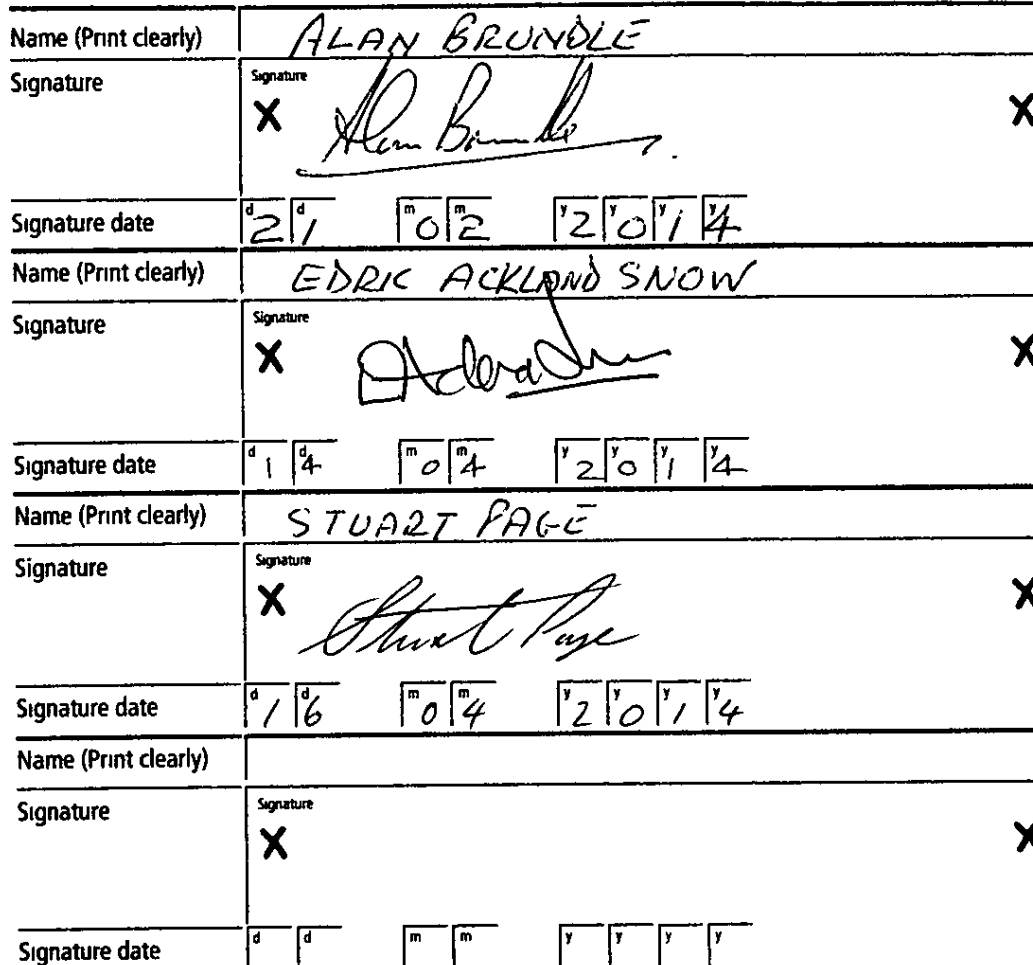 Name (Print clearly) ALAN BRUNDLE
Signature Signature
X Alan Brundle X
Signature date d2 d1 m0 m2 y2 y0 y1 y4
Name (Print clearly) EDRIC ACKLAND SNOW
Signature Signature
X X
Signature date d1 d4 m0 m4 y2 y0 y1 y4
Name (Print clearly) STUART PAGE
Signature Signature
X Stuart Page X
Signature date d1 d6 m0 m4 y2 y0 y1 y4
Name (Print clearly)
Signature Signature
X X
Signature date d d m m y y y y